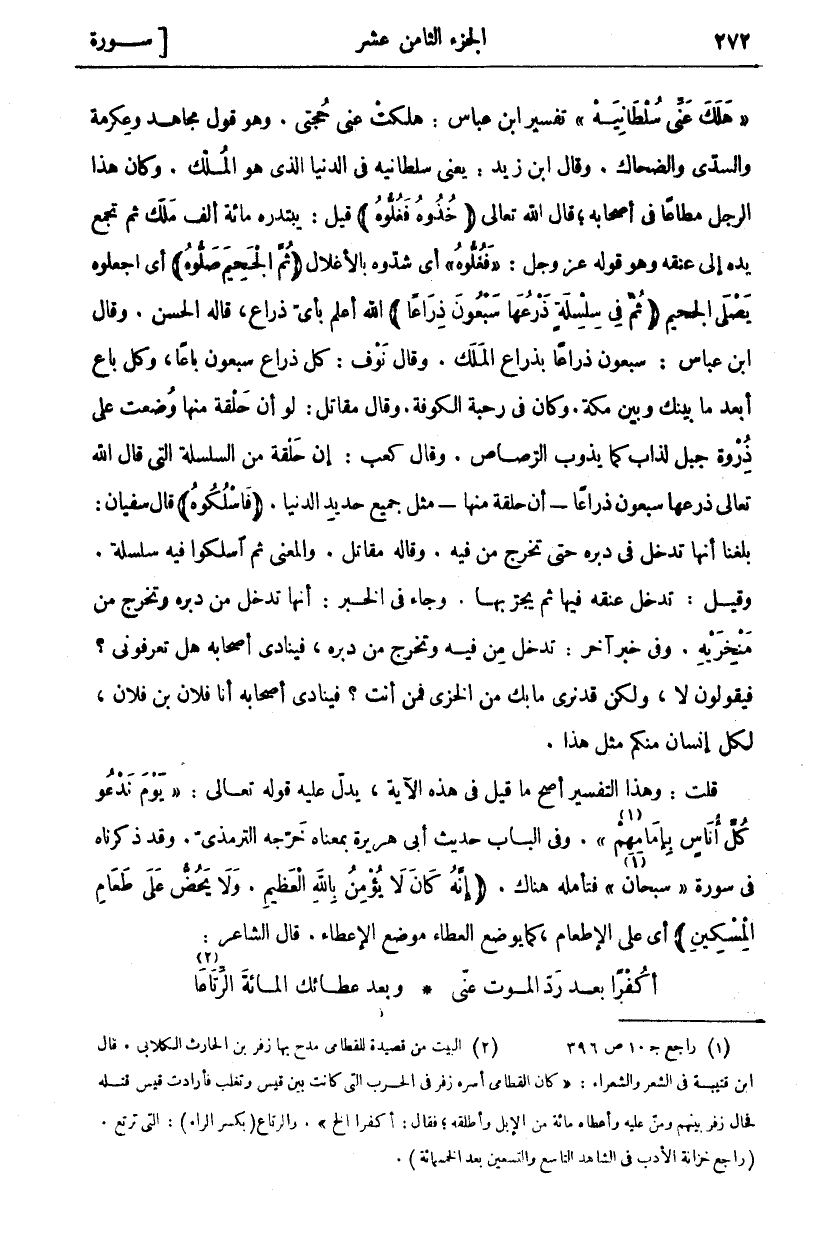 ٢٧٢ الجزء الثامن عشر [ ســورة
« هَلَكَ عَنِّي سُلْطَانِيَهْ » تفسير ابن عباس : هلكتْ عنى حُجتى . وهو قول مجاهد وعكرمة
والسدّى والضحاك . وقال ابن زيد : يعنى سلطانيه فى الدنيا الذى هو المُلْك . وكان هذا
الرجل مطاعًا فى أصحابه ؛ قال الله تعالى ﴿ خُذُوهُ فَغُلُّوهُ ﴾ قيل : يبتدره مائة ألف مَلَك ثم تجمع
يده إلى عنقه وهو قوله عز وجل : «فَغُلُّوهُ» أى شدّوه بالأغلال ﴿ثُمَّ الْجَحِيمَ صَلُّوهُ﴾ أى اجعلوه
يَصْلَى الجحيم ﴿ ثُمَّ فِي سِلْسِلَةٍ ذَرْعُهَا سَبْعُونَ ذِرَاعًا ﴾ الله أعلم بأىّ ذراع، قاله الحسن . وقال
ابن عباس : سبعون ذراعًا بذراع المَلَك . وقال نَوْف : كل ذراع سبعون باعًا، وكل باع
أبعد ما بينك وبين مكة. وكان فى رحبة الكوفة. وقال مقاتل: لو أن حَلْقة منها وُضعت على
ذُرْوة جبل لذاب كما يذوب الرّصاص . وقال كعب : إن حَلْقة من السلسلة التى قال الله
تعالى ذرعها سبعون ذراعًا — أن حلقة منها — مثل جميع حديد الدنيا . ﴿فَاسْلُكُوهُ﴾ قال سفيان:
بلغنا أنها تدخل فى دبره حتى تخرج من فيه . وقاله مقاتل . والمعنى ثم اَسلكوا فيه سلسلة .
وقيــل : تدخل عنقه فيها ثم يجرّ بهـا . وجاء فى الخـبر : أنها تدخل من دبره وتخرج من
مَنْخِرَيْهِ . وفى خبر آخر : تدخل مِن فيــه وتخرج من دبره ، فينادى أصحابه هل تعرفونى ؟
فيقولون لا ، ولكن قد نرى ما بك من الخزى فمن أنت ؟ فينادى أصحابه أنا فلان بن فلان ،
لكل إنسان منكم مثل هذا .
قلت : وهذا التفسير أصح ما قيل فى هذه الآية ، يدلّ عليه قوله تعـالى : « يَوْمَ نَدْعُو
كُلَّ أُنَاسٍ بِإِمَامِهِمْ (١) » . وفى البـاب حديث أبى هريرة بمعناه خَرّجه الترمذىّ . وقد ذكرناه
فى سورة « سبحان (١) » فتأمله هناك . ﴿ إِنَّهُ كَانَ لَا يُؤْمِنُ بِاللَّهِ الْعَظِيمِ . وَلَا يَحُضُّ عَلَى طَعَامِ
الْمِسْكِينِ ﴾ أى على الإطعام ، كما يوضع العطاء موضع الإعطاء . قال الشاعر :
أَكُفْرًا بعــد رَدّ المــوت عنّى * وبعد عطـائك المـائةَ الرِّتَاعَا (٢)
(١) راجع جـ ١٠ ص ٣٩٦ (٢) البيت من قصيدة للقطامى مدح بها زفر بن الحارث الكلابى . قال
ابن قتيبــة فى الشعر والشعراء : « كان القطامى أسره زفر فى الحـرب التى كانت بين قيس وتغلب فأرادت قيس قتــله
فحال زفر بينهم ومنّ عليه وأعطاه مائة من الإبل وأطلقه ؛ فقال : أكفرا الخ » . والرتاع (بكسر الراء) : التى ترتع .
(راجع خزانة الأدب فى الشاهد التاسع والتسعين بعد الخمسمائة ) .